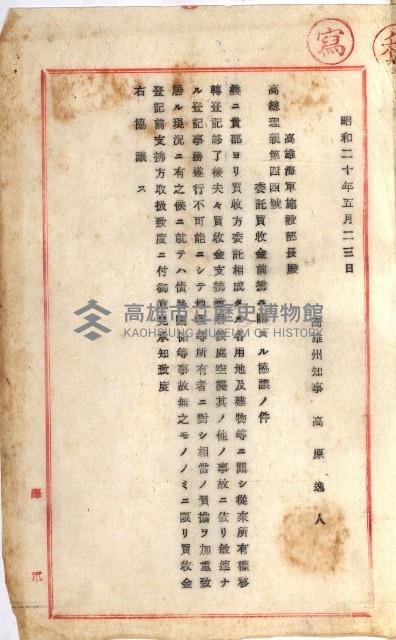 寫
秘
昭和二十年五月二三日
高雄州知事 高原逸人
高雄海軍施設部長殿
高總理親第四四號
委託買收金前拂ニ關スル協議ノ件
義ニ貴部ヨリ買收方委託相成タル各用地及建物等ニ關シ從來所有權移
轉登記終了後夫々買收金支拂致居候處空襲其ノ他ノ事故ニ依リ敏速ナ
ル登記事務遂行不可能ニシテ地權等所有者ニ對シ相當ノ負擔ヲ加重致
居ル現況ニ有之候ニ就テハ債務關係等事故無之モノノミニ限リ買收金
登記前支拂方取扱致度ニ付御意見承知致度
右協議ス
海軍
高雄市立歷史博物館
KAOHSIUNG MUSEUM OF HISTORY